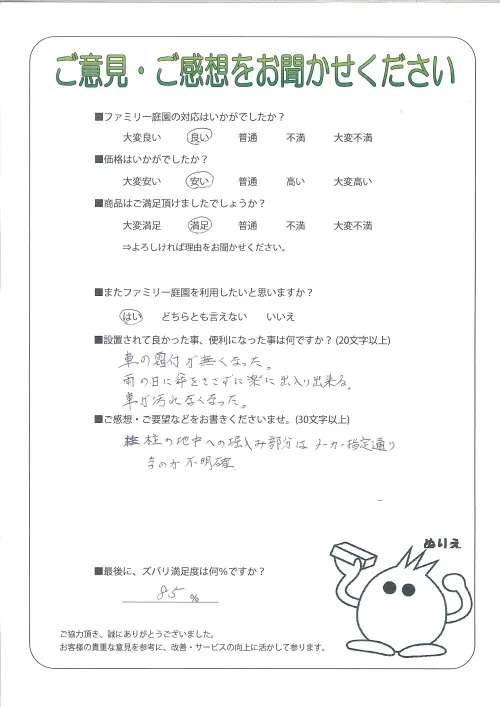 ご意見・ご感想をお聞かせください
■ファミリー庭園の対応はいかがでしたか？
大変良い 良い 普通 不満 大変不満
■価格はいかがでしたか？
大変安い 安い 普通 高い 大変高い
■商品はご満足頂けましたでしょうか？
大変満足 満足 普通 不満 大変不満
⇒よろしければ理由をお聞かせください。
■またファミリー庭園を利用したいと思いますか？
はい どちらとも言えない いいえ
■設置されて良かった事、便利になった事は何ですか？(20文字以上)
車の霜付が無くなった。
雨の日に傘をささずに楽に出入り出来る。
車が汚れなくなった。
■ご感想・ご要望などをお書きくださいませ。(30文字以上)
柱の地中への堀込み部分はメーカー指定通り
なのか不明確
ぬりえ
■最後に、ズバリ満足度は何％ですか？
85 %
ご協力頂き、誠にありがとうございました。
お客様の貴重な意見を参考に、改善・サービスの向上に活かして参ります。